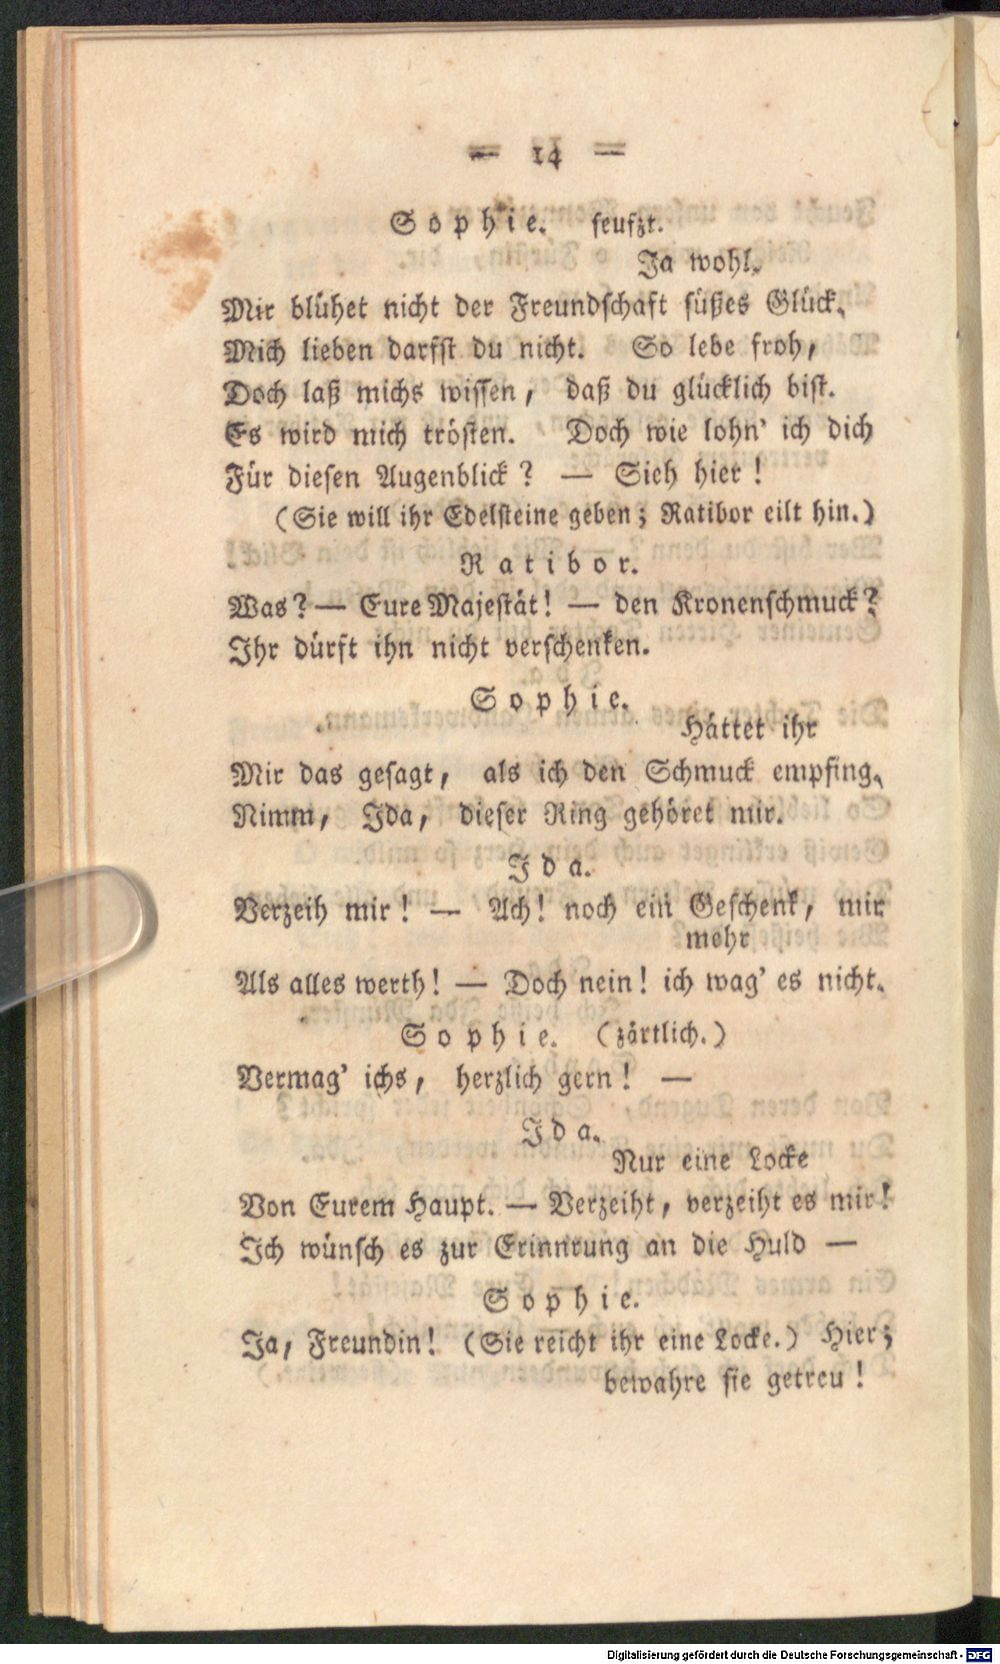 — 14 —
Sophie. seufzt.
Ja wohl.
Mir blühet nicht der Freundschaft süßes Glück.
Mich lieben darfst du nicht. So lebe froh,
Doch laß michs wissen, daß du glücklich bist.
Es wird mich trösten. Doch wie lohn' ich dich
Für diesen Augenblick? — Sieh hier!
(Sie will ihr Edelsteine geben; Ratibor eilt hin.)
Ratibor.
Was? — Eure Majestät! — den Kronenschmuck?
Ihr dürft ihn nicht verschenken.
Sophie.
Hättet ihr
Mir das gesagt, als ich den Schmuck empfing.
Nimm, Ida, dieser Ring gehöret mir.
Ida.
Verzeih mir! — Ach! noch ein Geschenk, mir
mehr
Als alles werth! — Doch nein! ich wag' es nicht.
Sophie. (zärtlich.)
Vermag' ichs, herzlich gern! —
Ida.
Nur eine Locke
Von Eurem Haupt. — Verzeiht, verzeiht es mir!
Ich wünsch es zur Erinnrung an die Huld —
Sophie.
Ja, Freundin! (Sie reicht ihr eine Locke.) Hier;
bewahre sie getreu!
Digitalisierung gefördert durch die Deutsche Forschungsgemeinschaft - DFG